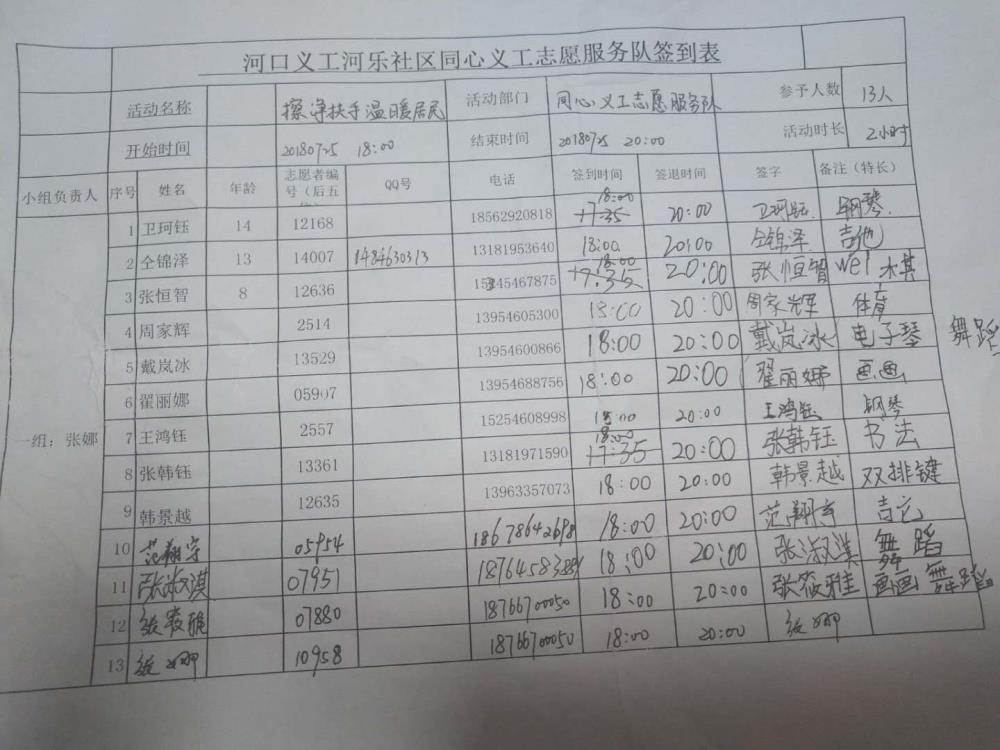 河口义工河乐社区同心义工志愿服务队签到表
活动名称 擦净扶手温暖居民 活动部门 同心义工志愿服务队 参予人数 13人
开始时间 20180725 18:00 结束时间 20180725 20:00 活动时长 2小时
小组负责人 序号 姓名 年龄 志愿者编号（后五 QQ号 电话 签到时间 签退时间 签字 备注（特长）
一组：张娜
1 卫珂钰 14 12168 18562920818 18:00 17:35 20:00 卫珂钰 钢琴
2 仝锦泽 13 14007 1484630313 13181953640 18:00 20:00 仝锦泽 吉他
3 张恒智 8 12636 15345467875 18:00 17:35 20:00 张恒智 围棋
4 周家辉 2514 13954605300 18:00 20:00 周家辉 体育
5 戴岚冰 13529 13954600866 18:00 20:00 戴岚冰 电子琴 舞蹈
6 翟丽娜 05907 13954688756 18:00 20:00 翟丽娜 画画
7 王鸿钰 2557 15254608998 18:00 20:00 王鸿钰 钢琴
8 张韩钰 13361 13181971590 18:00 17:35 20:00 张韩钰 书法
9 韩景越 12635 13963357073 18:00 20:00 韩景越 双排键
10 范翔宇 05954 18678642698 18:00 20:00 范翔宇
11 张淑淇 07951 18:00 20:00 张淑淇 舞蹈
12 张筱雅 07880 18766700050 18:00 20:00 张筱雅 画画 舞蹈
13 张娜 10958 18766700050 18:00 20:00 张娜